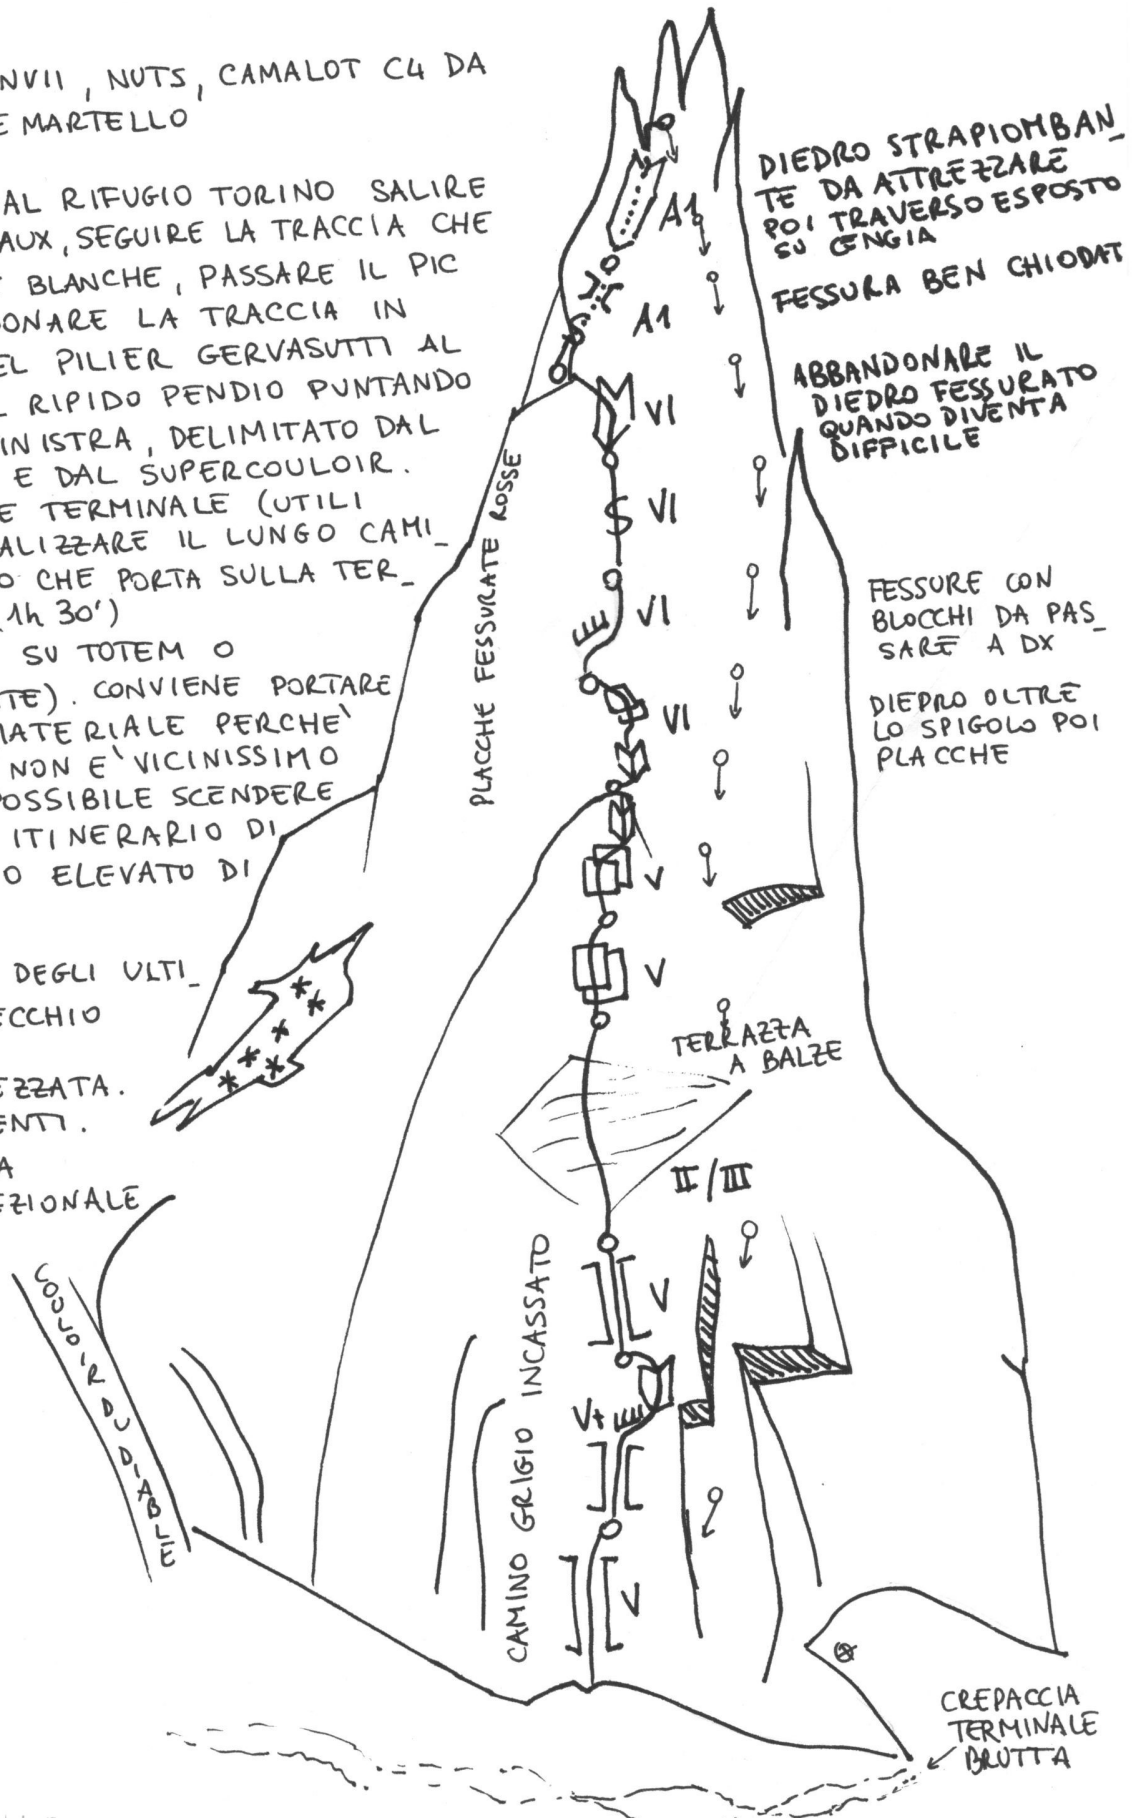 NVII, NUTS, CAMALOT C4 DA
E MARTELLO
AL RIFUGIO TORINO SALIRE
AUX, SEGUIRE LA TRACCIA CHE
BLANCHE, PASSARE IL PIC
ONARE LA TRACCIA IN
EL PILIER GERVASUTTI AL
L RIPIDO PENDIO PUNTANDO
INISTRA, DELIMITATO DAL
E DAL SUPERCOULOIR.
E TERMINALE (UTILI
ALIZZARE IL LUNGO CAMI_
O CHE PORTA SULLA TER_
1h 30')
SU TOTEM O
TE). CONVIENE PORTARE
MATERIALE PERCHE'
NON E' VICINISSIMO
POSSIBILE SCENDERE
ITINERARIO DI
O ELEVATO DI
DEGLI ULTI_
ECCHIO
EZZATA.
ENTI.
A
EZIONALE
COULOIR DU DIABLE
PLACCHE FESSURATE ROSSE
CAMINO GRIGIO INCASSATO
A1
A1
VI
VI
VI
VI
V
V
TERRAZZA
A BALZE
II/III
V
V+
V
DIEDRO STRAPIOMBAN_
TE DA ATTREZZARE
POI TRAVERSO ESPOSTO
SU CENGIA
FESSURA BEN CHIODAT
ABBANDONARE IL
DIEDRO FESSURATO
QUANDO DIVENTA
DIFFICILE
FESSURE CON
BLOCCHI DA PAS_
SARE A DX
DIEDRO OLTRE
LO SPIGOLO POI
PLACCHE
CREPACCIA
TERMINALE
BRUTTA